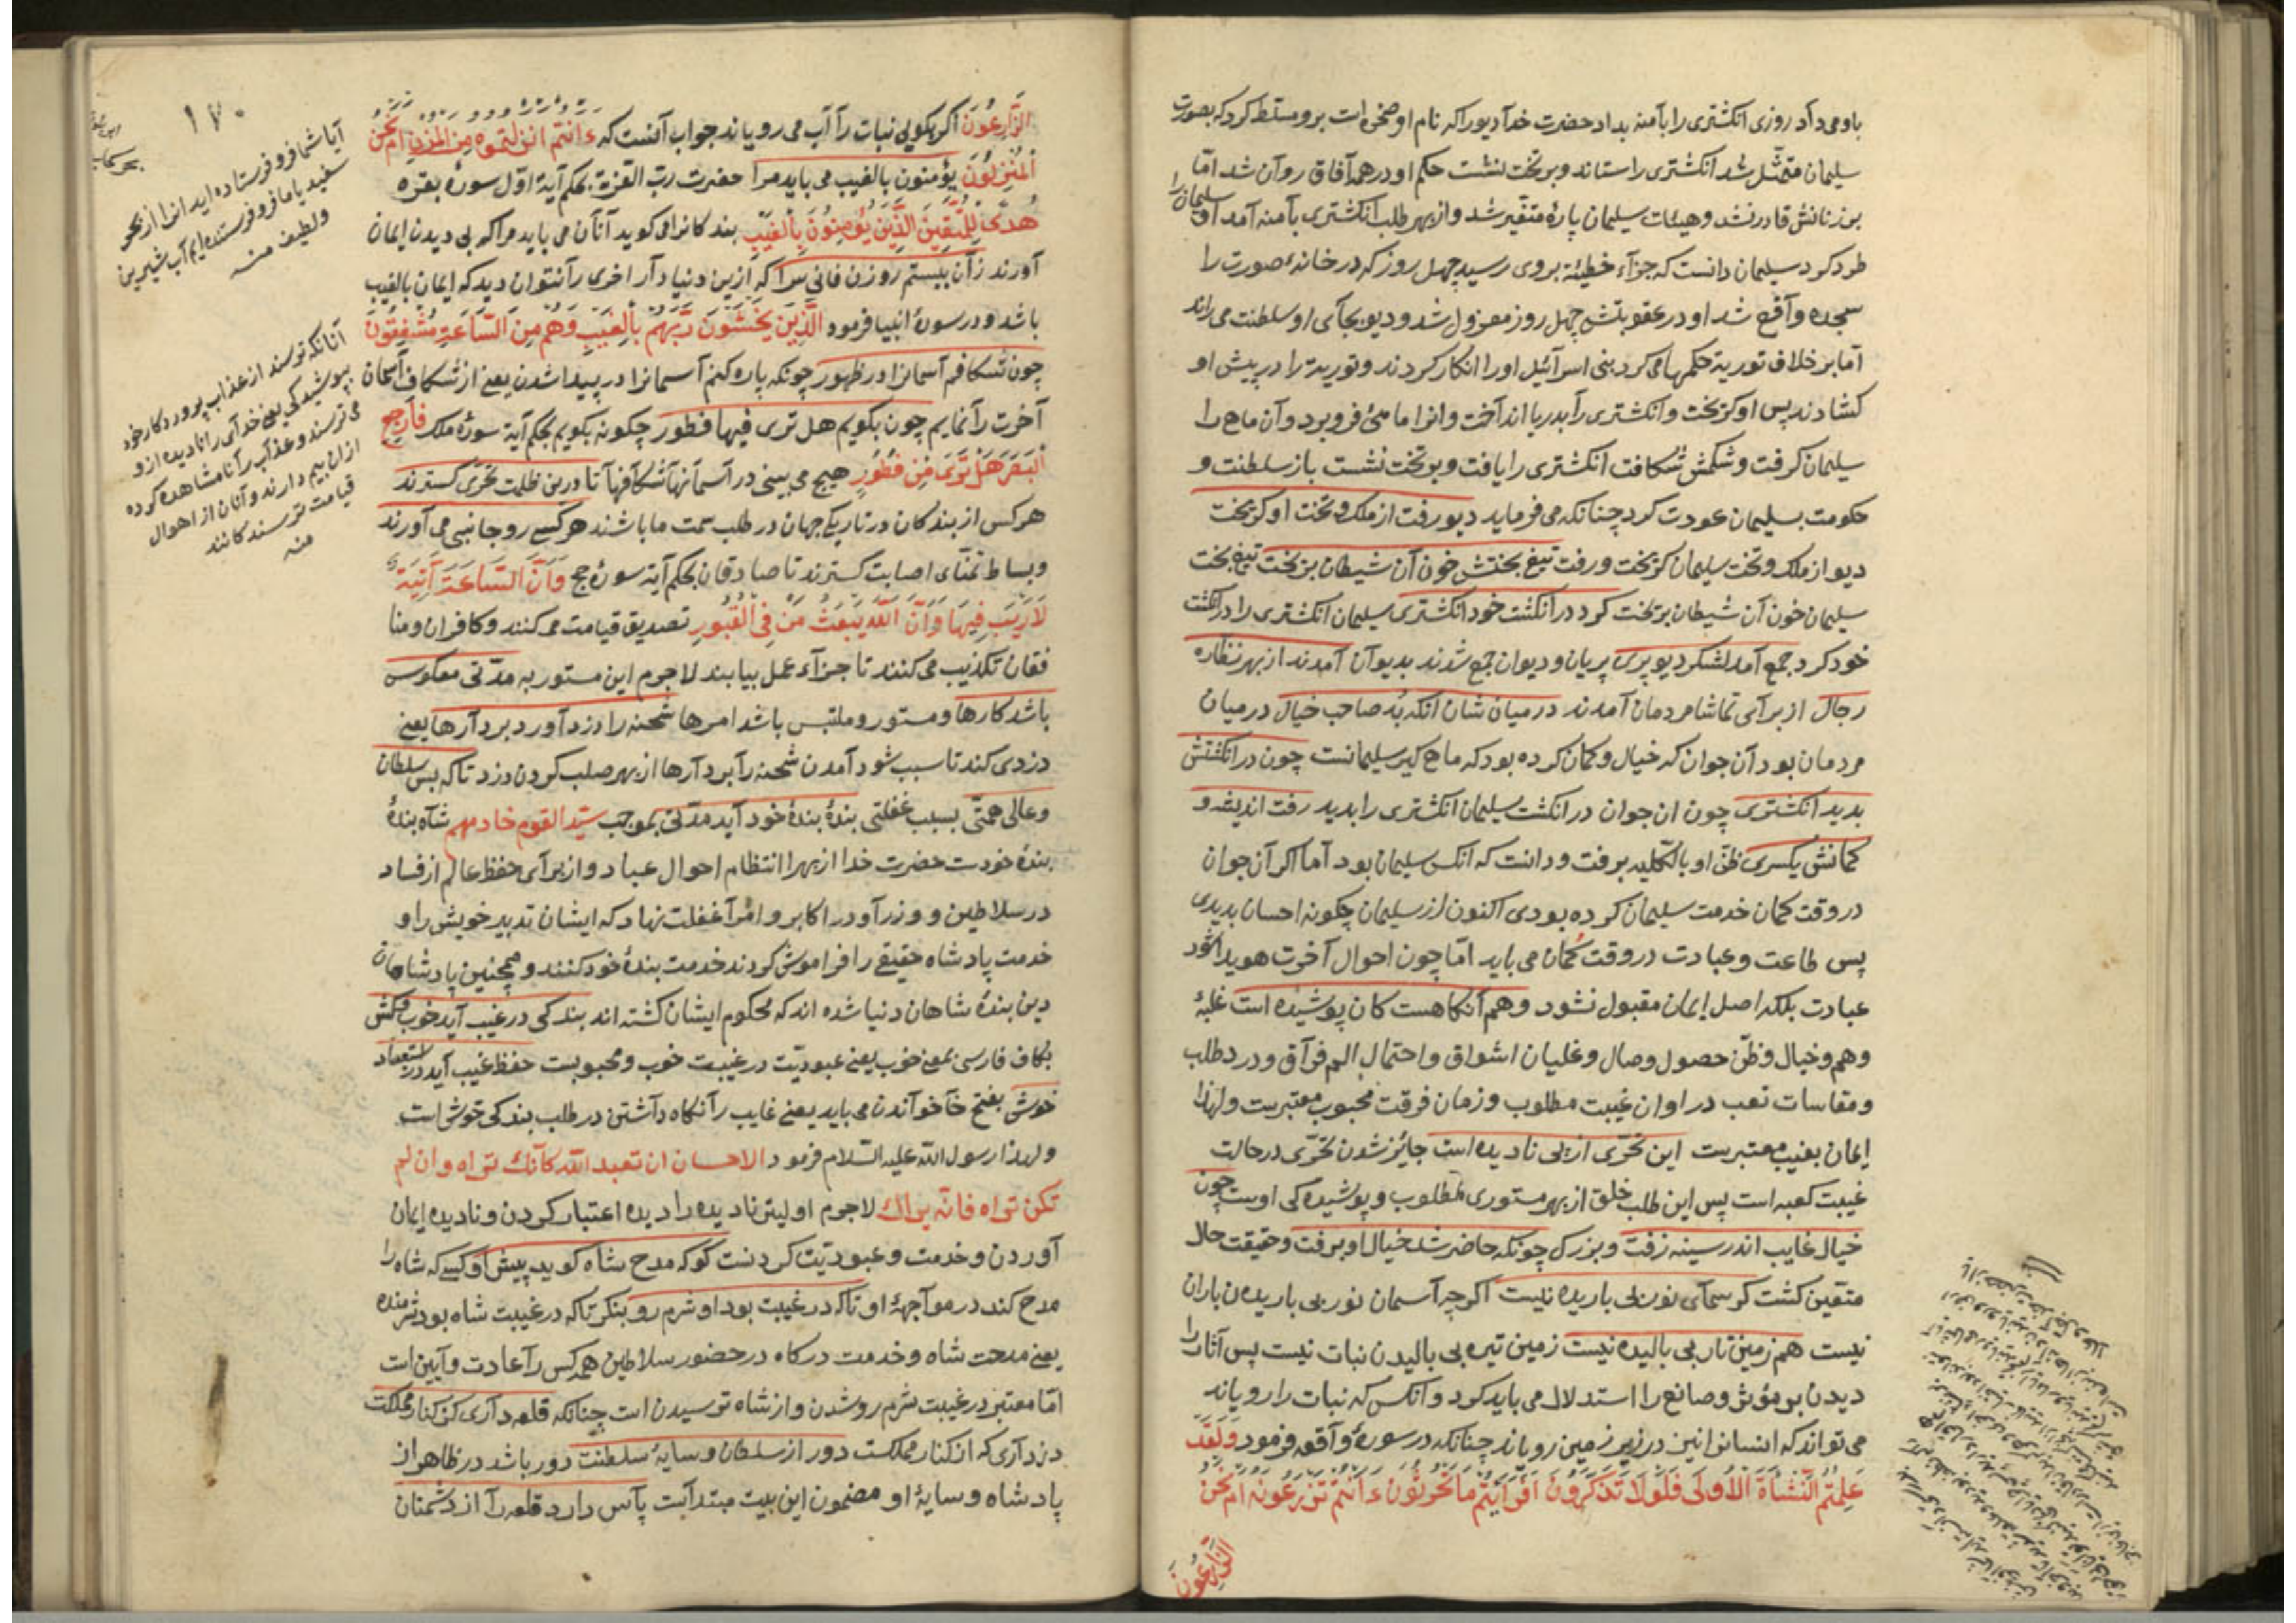 باو می داد روزی انکشتری را بآمنه بداد حضرت خدا دیو را که نام او صخر است برو مسلط کرد که بصورت
سلیمان متمثل شد انکشتری را ستاند و بر تخت نشست حکم او در همه آفاق روان شد امّا
بر زنانش قادر نشد و هیئات سلیمان پارهٔ متغیر شد و از بهر طلب انکشتری بآمنه آمد او سلیمان را
طرد کرد سلیمان دانست که جزآء خطیئه بروی رسید چهل روز که در خانهٔ صورت را
سجده واقع شد او در عقوبتش چهل روز معزول شد و دیو بجآی او سلطنت می راند
آما بر خلاف توریة حکمها می کرد بنی اسرآئیل او را انکار کردند و توریة را در پیش او
کشادند پس او کریخت و انکشتری را بدریا اندآخت و انرا ماهئ فرو برد و آن ماهی را
سلیمان کرفت و شکمش شکافت انکشتری را یافت و بر تخت نشست باز سلطنت و
حکومت بسلیمان عودت کرد چنانکه می فرماید دیو رفت از ملک و تخت او کریخت
دیو از ملک و تخت سلیمان کریخت و رفت تیغ بختش خون آن شیطان بریخت تیغ بخت
سلیمان خون آن شیطان بریخت کرد در انکشت خود انکشتری سلیمان انکشتری را در انکشت
خود کرد جمع آمد لشکر دیو پری پریان و دیوان جمع شدند بدیوآن آمدند از بهر نظاره
رجال از برآی تماشا مردمان آمدند در میان شان انکه بُد صاحب خیال در میان
مردمان بود آن جوان که خیال و کمان کرده بود که ماهی کیر سلیمانست چون در انکشتش
بدید انکشتری چون ان جوان در انکشت سلیمان انکشتری را بدید رفت اندیشه و
کمانش یکسری ظنّ او بالکلیه برفت و دانست که انکس سلیمان بود آما اکر آن جوان
در وقت کمان خدمت سلیمان کرده بودی اکنون از سلیمان چکونه احسان بدیدی
پس طاعت و عبادت در وقت کمان می باید امّا چون احوال آخرت هویدا شود
عبادت بلکه اصل ایمان مقبول نشود وهم آنکاهست کان پوشیده است غلبهٔ
وهم و خیال و ظنّ حصول وصال و غلیان اشواق و احتمال الم فرآق و درد طلب
و مقاسات تعب در اوان غیبت مطلوب و زمان فرقت محبوب معتبرست و لهذا
ایمان بغیب معتبرست این تحرّی از پی نادیده است جائز شدن تحرّی در حالت
غیبت کعبه است پس این طلب خلق از بهر مستوری مطلوب و پوشیده کی اوست چون
خیال غایب اندر سینه زفت و بزرک چونکه حاضر شد خیال او برفت و حقیقت حال
متقین کشت کر سمآی نور بی باریده نیست اکر چه آسمان نور بی باریدن باران
نیست هم زمین تار بی بالیده نیست زمین تیره بی بالیدن نبات نیست پس آثار را
دیدن بر مؤثر و صانع را استدلال می باید کرد و انکس که نبات را رویاند
می تواند که انسانرا نین در زیر زمین رویاند چنانکه در سورهٔ وآقعه فرمود وَلَقَدْ
عَلِمْتُمُ النَّشْاَةَ الْاُولٰی فَلَوْلَا تَذَكَّرُونَ اَفَرَاَیْتُمْ مَا تَحْرُثُونَ ءَاَنْتُمْ تَزْرَعُونَهُ اَمْ نَحْنُ
الزَّارِعُونَ
۱۷۰
الزَّارِعُونَ اکر بکویی نبات را آب می رویاند جواب آنست که ءَاَنْتُمْ اَنْزَلْتُمُوهُ مِنَ الْمُزْنِ اَمْ نَحْنُ
الْمُنْزِلُونَ یؤمنون بالغیب می باید مرا حضرت ربّ العزة بحکم آیة اوّل سورهٔ بقره
هُدًی لِلْمُتَّقِینَ الَّذِینَ یُؤْمِنُونَ بِالْغَیْبِ بند کانرا می کوید آنان می باید مرا که بی دیدن ایمان
آورند زآن ببستم روزن فانی سرا که ازین دنیا دآر اخری را نتوان دید که ایمان بالغیب
باشد و در سورهٔ انبیا فرمود الَّذِینَ یَخْشَوْنَ رَبَّهُمْ بِالْغَیْبِ وَهُمْ مِنَ السَّاعَةِ مُشْفِقُونَ
چون شکافم آسمانرا در ظهور چونکه پاره کنم آسمانرا در پیدا شدن یعنی از شکاف آسمان
آخرت را نمایم چون بکویم هل تری فیها فطور چکونه بکویم بحکم آیة سورهٔ ملک فَارْجِعِ
الْبَصَرَ هَلْ تَرَی مِنْ فُطُورٍ هیچ می بینی در آسمانها شکافها تا درین ظلمت تحرّی کسترند
هر کس از بندکان در تاریکی جهان در طلب سمت ما باشند هر کسی رو جانبی می آورند
و بساط تمنّای اصابت کسترند تا صادقان بحکم آیة سورهٔ حج وَاَنَّ السَّاعَةَ آتِیَةٌ
لَا رَیْبَ فِیهَا وَاَنَّ اللّٰهَ یَبْعَثُ مَنْ فِی الْقُبُورِ تصدیق قیامت می کنند و کافران و منا
فقان تکذیب می کنند تا جزآء عمل بیابند لاجرم این مستور به مدّتی معکوس
باشد کارها و مستور و ملتبس باشد امرها شحنه را دزد آورد بر دآرها یعنی
دزدی کند تا سبب شود آمدن شحنه را بر دآرها از بهر صلب کردن دزد تا که بس سلطان
و عالی همّتی بسبب غفلتی بندهٔ بندهٔ خود آید مدّتی بموجب سیّد القوم خادمهم شاه بندهٔ
بندهٔ خودست حضرت خدا از بهر انتظام احوال عباد و از برآی حفظ عالم از فساد
در سلاطین و وزرآ و در اکابر و امرآ غفلت نهاد که ایشان تدبیر خویش را و
خدمت پادشاه حقیقی را فراموش کردند خدمت بندهٔ خود کنند و همچنین پادشاهان
دین بندهٔ شاهان دنیا شده اند که محکوم ایشان کشته اند بندکی در غیب آید خوب و کش
بکاف فارسی بمعنی خوب یعنی عبودیّت در غیبت خوب و محبوبست حفظ غیب آید در استعباد
خوش بفتح خا خوآندن می باید یعنی غایب را نکاه داشتن در طلب بندکی خوش است
و لهذا رسول الله علیه السّلام فرمود الاحسان ان تعبد الله کانّك تراه وان لم
تکن تراه فانّه یراك لاجرم اولیتر نادیده را دیده اعتبار کردن و نادیده ایمان
آوردن و خدمت و عبودیّت کردنست کو که مدح شاه کوید پیش او کسی که شاه را
مدح کند در موآجههٔ او تا که در غیبت بود او شرم رو بنکر تا که در غیبت شاه بود شرمنده
یعنی مدحت شاه و خدمت درکاه در حضور سلاطین همه کس را عادت و آیین است
امّا معتبر در غیبت شرم رو شدن و از شاه ترسیدن است چنانکه قلعه دآری کز کنار مملکت
دزدآری که از کنار مملکت دور از سلطان و سایهٔ سلطنت دور باشد در ظاهر از
پادشاه و سایهٔ او مضمون این بیت مبتدآست پآس دارد قلعه را از دشمنان
آیا شما فرو فرستاده اید انرا از بحر
سفید یا ما فرو فرستنده ایم آب شیرین
ولطیف منه
آنانکه ترسند از عذاب پروردکار خود
بپوشیدکی یعنی خدآی را نادیده از و
می ترسند و عذاب را نا مشاهده کرده
ازان بیم دارند و آنان از اهوال
قیامت ترسندکانند
منه